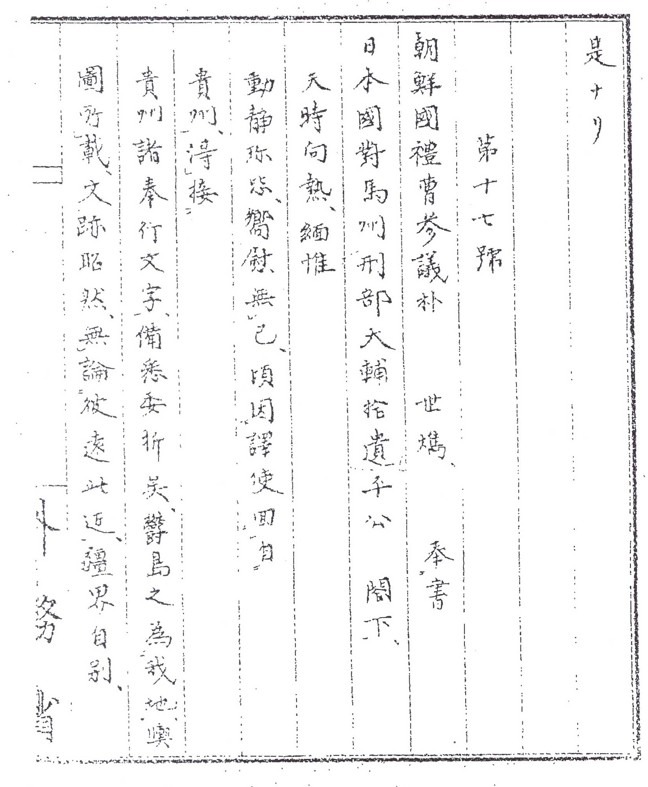 是ナリ
第十七號
朝鮮國禮曹參議朴 世㷞、 奉書
日本國對馬州刑部大輔拾遺平公 閤下、
天時向熱、緬惟
動静珎毖、嚮慰無已、頃因譯使回自
貴州、得接
貴州諸奉行文字、備悉委折矣、鬱島之為我地、輿
圖所載、文跡昭然、無論彼遠此近、疆界自別、
外務省